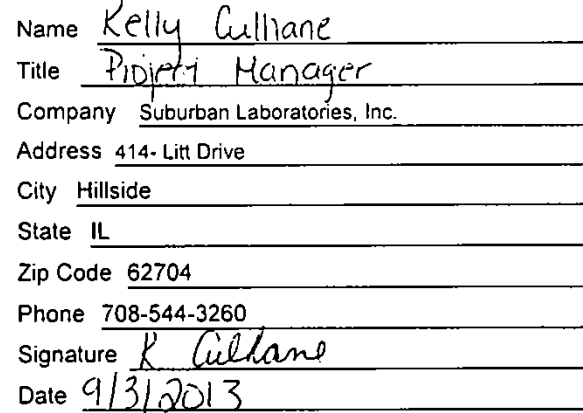 Name Kelly Culhane
Title Project Manager
Company Suburban Laboratories, Inc.
Address 414- Litt Drive
City Hillside
State IL
Zip Code 62704
Phone 708-544-3260
Signature K Culhane
Date 9/3/2013